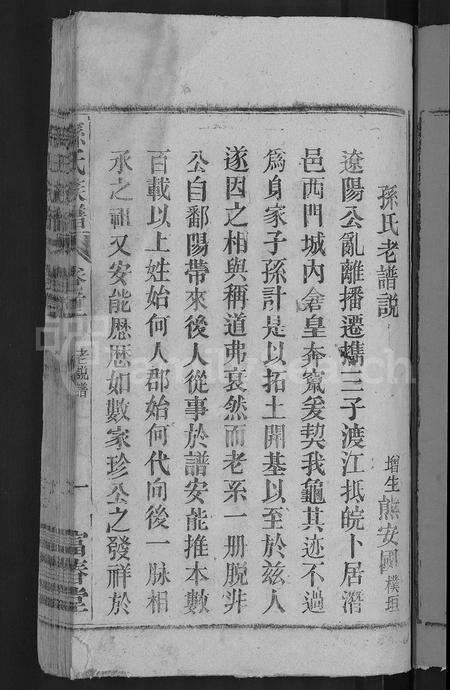 孫氏老譜説
增生熊安國樸垣
遼陽公亂離播遷攜三子渡江抵皖卜居潛
邑西門城内倉皇奔竄爰契我龜其迹不過
爲身家子孫計是以拓土開基以至於茲人
遂因之相與稱道弗衰然而老系一册脫非
公自鄱陽帶來後人從事於譜安能推本數
百載以上姓始何人郡始何代向後一脉相
承之祖又安能歷歷如數家珍公之發祥於
孫氏族譜
卷首
老説譜
一
富春堂